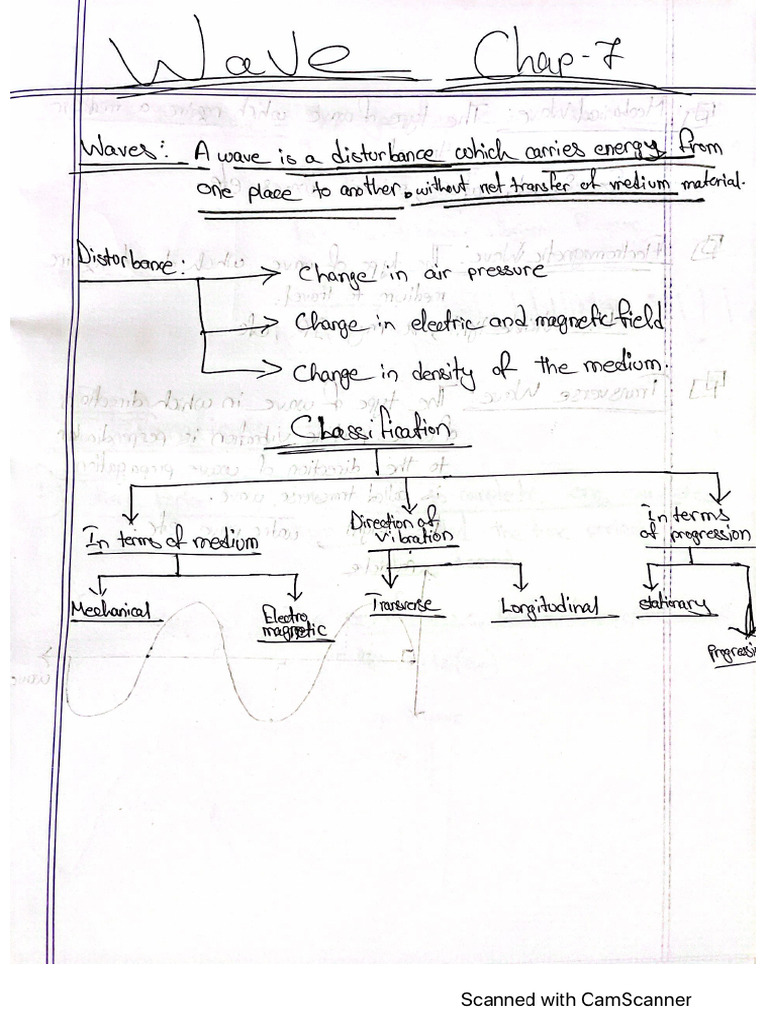 Wave Chap-7
Waves: A wave is a disturbance which carries energy from
one place to another, without net transfer of medium material.
Disturbance: Change in air pressure
Change in electric and magnetic field
Change in density of the medium.
Classification
In terms of medium
Direction of
vibration
In terms
of progression
Mechanical
Electro
magnetic
Transverse
Longitudinal
Stationary
Progressi
Scanned with CamScanner